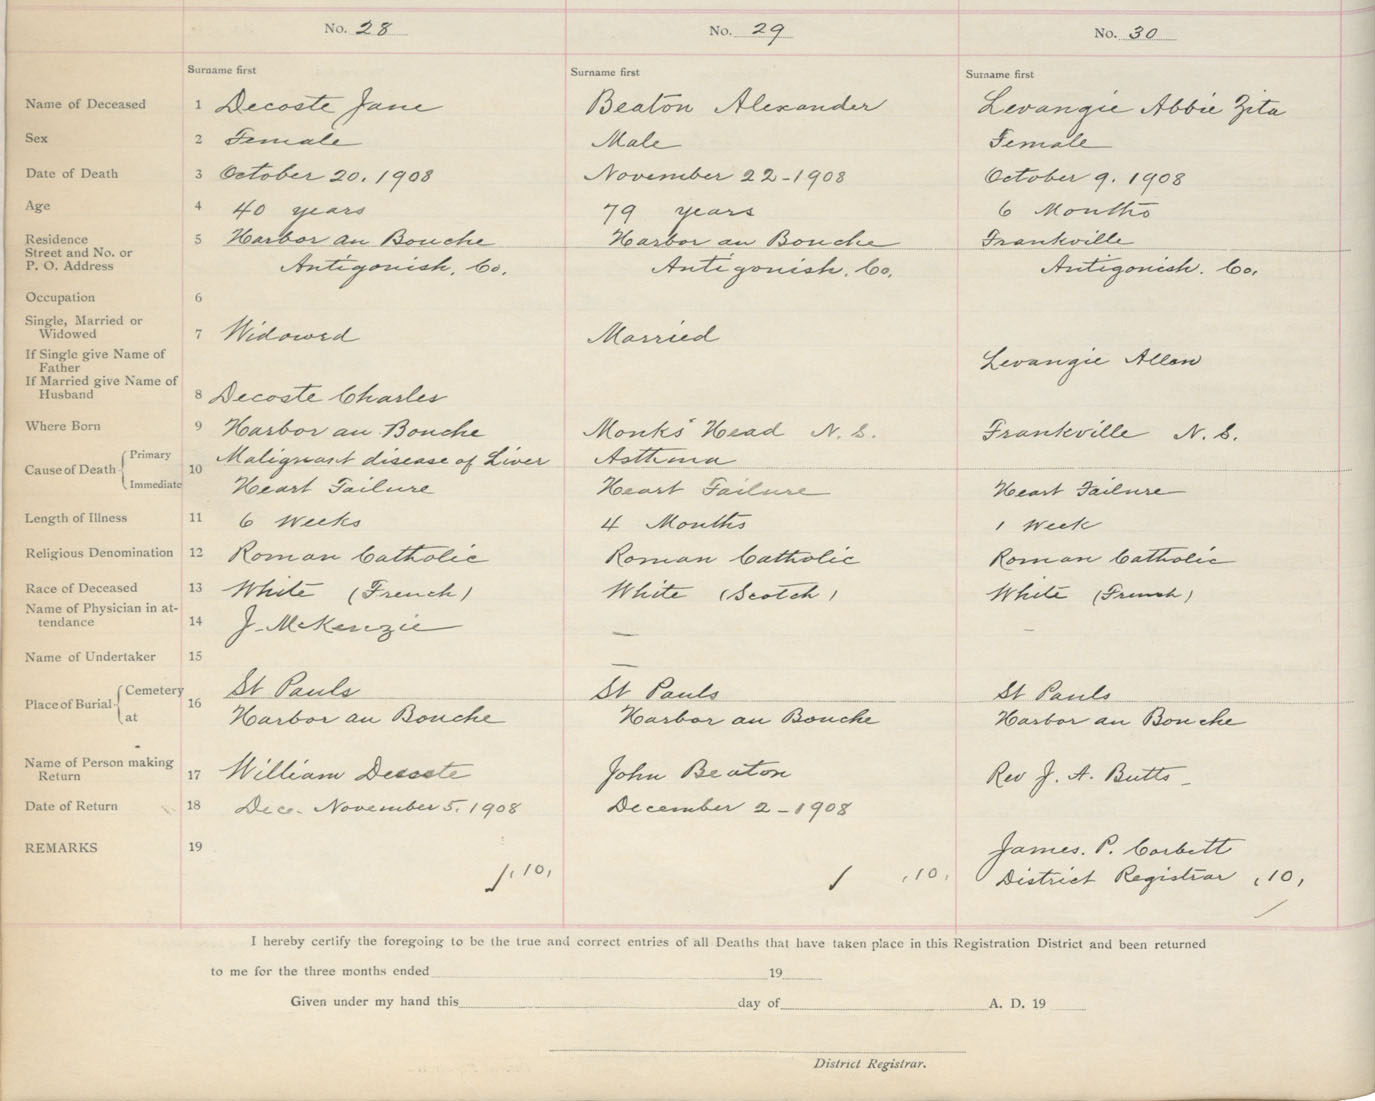 No. 28 No. 29 No. 30
Surname first Surname first Surname first
Name of Deceased 1 Decoste Jane Beaton Alexander Levangie Abbie Zita
Sex 2 Female Male Female
Date of Death 3 October 20. 1908 November 22-1908 October 9. 1908
Age 4 40 years 79 years 6 Months
Residence 5 Harbor au Bouche Harbor au Bouche Frankville
Street and No. or
P. O. Address Antigonish. Co. Antigonish. Co. Antigonish. Co.
Occupation 6
Single, Married or
Widowed 7 Widowed Married
If Single give Name of
Father Levangie Allan
If Married give Name of
Husband 8 Decoste Charles
Where Born 9 Harbor au Bouche Monks' Head N.S. Frankville N.S.
Cause of Death 10 Primary Malignant disease of Liver Asthma
Immediate Heart Failure Heart Failure Heart Failure
Length of Illness 11 6 Weeks 4 Months 1 Week
Religious Denomination 12 Roman Catholic Roman Catholic Roman Catholic
Race of Deceased 13 White (French) White (Scotch) White (French)
Name of Physician in at-
tendance 14 J. McKenzie — –
Name of Undertaker 15 —
Place of Burial 16 Cemetery St Pauls St Pauls St Pauls
at Harbor au Bouche Harbor au Bouche Harbor au Bouche
Name of Person making
Return 17 William Decoste John Beaton Rev J. A. Butts -
Date of Return 18 Dec. November 5. 1908 December 2-1908
REMARKS 19 James. P. Corbett
1 ,10, 1 ,10, District Registrar ,10,
I hereby certify the foregoing to be the true and correct entries of all Deaths that have taken place in this Registration District and been returned
to me for the three months ended 19
Given under my hand this day of A. D. 19
District Registrar.